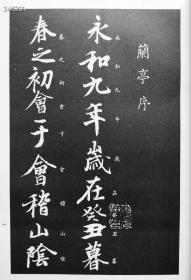 蘭亭序
永和九年歲在癸丑暮
永和九年歲在癸丑暮
春之初會于會稽山陰
春之初會于會稽山陰